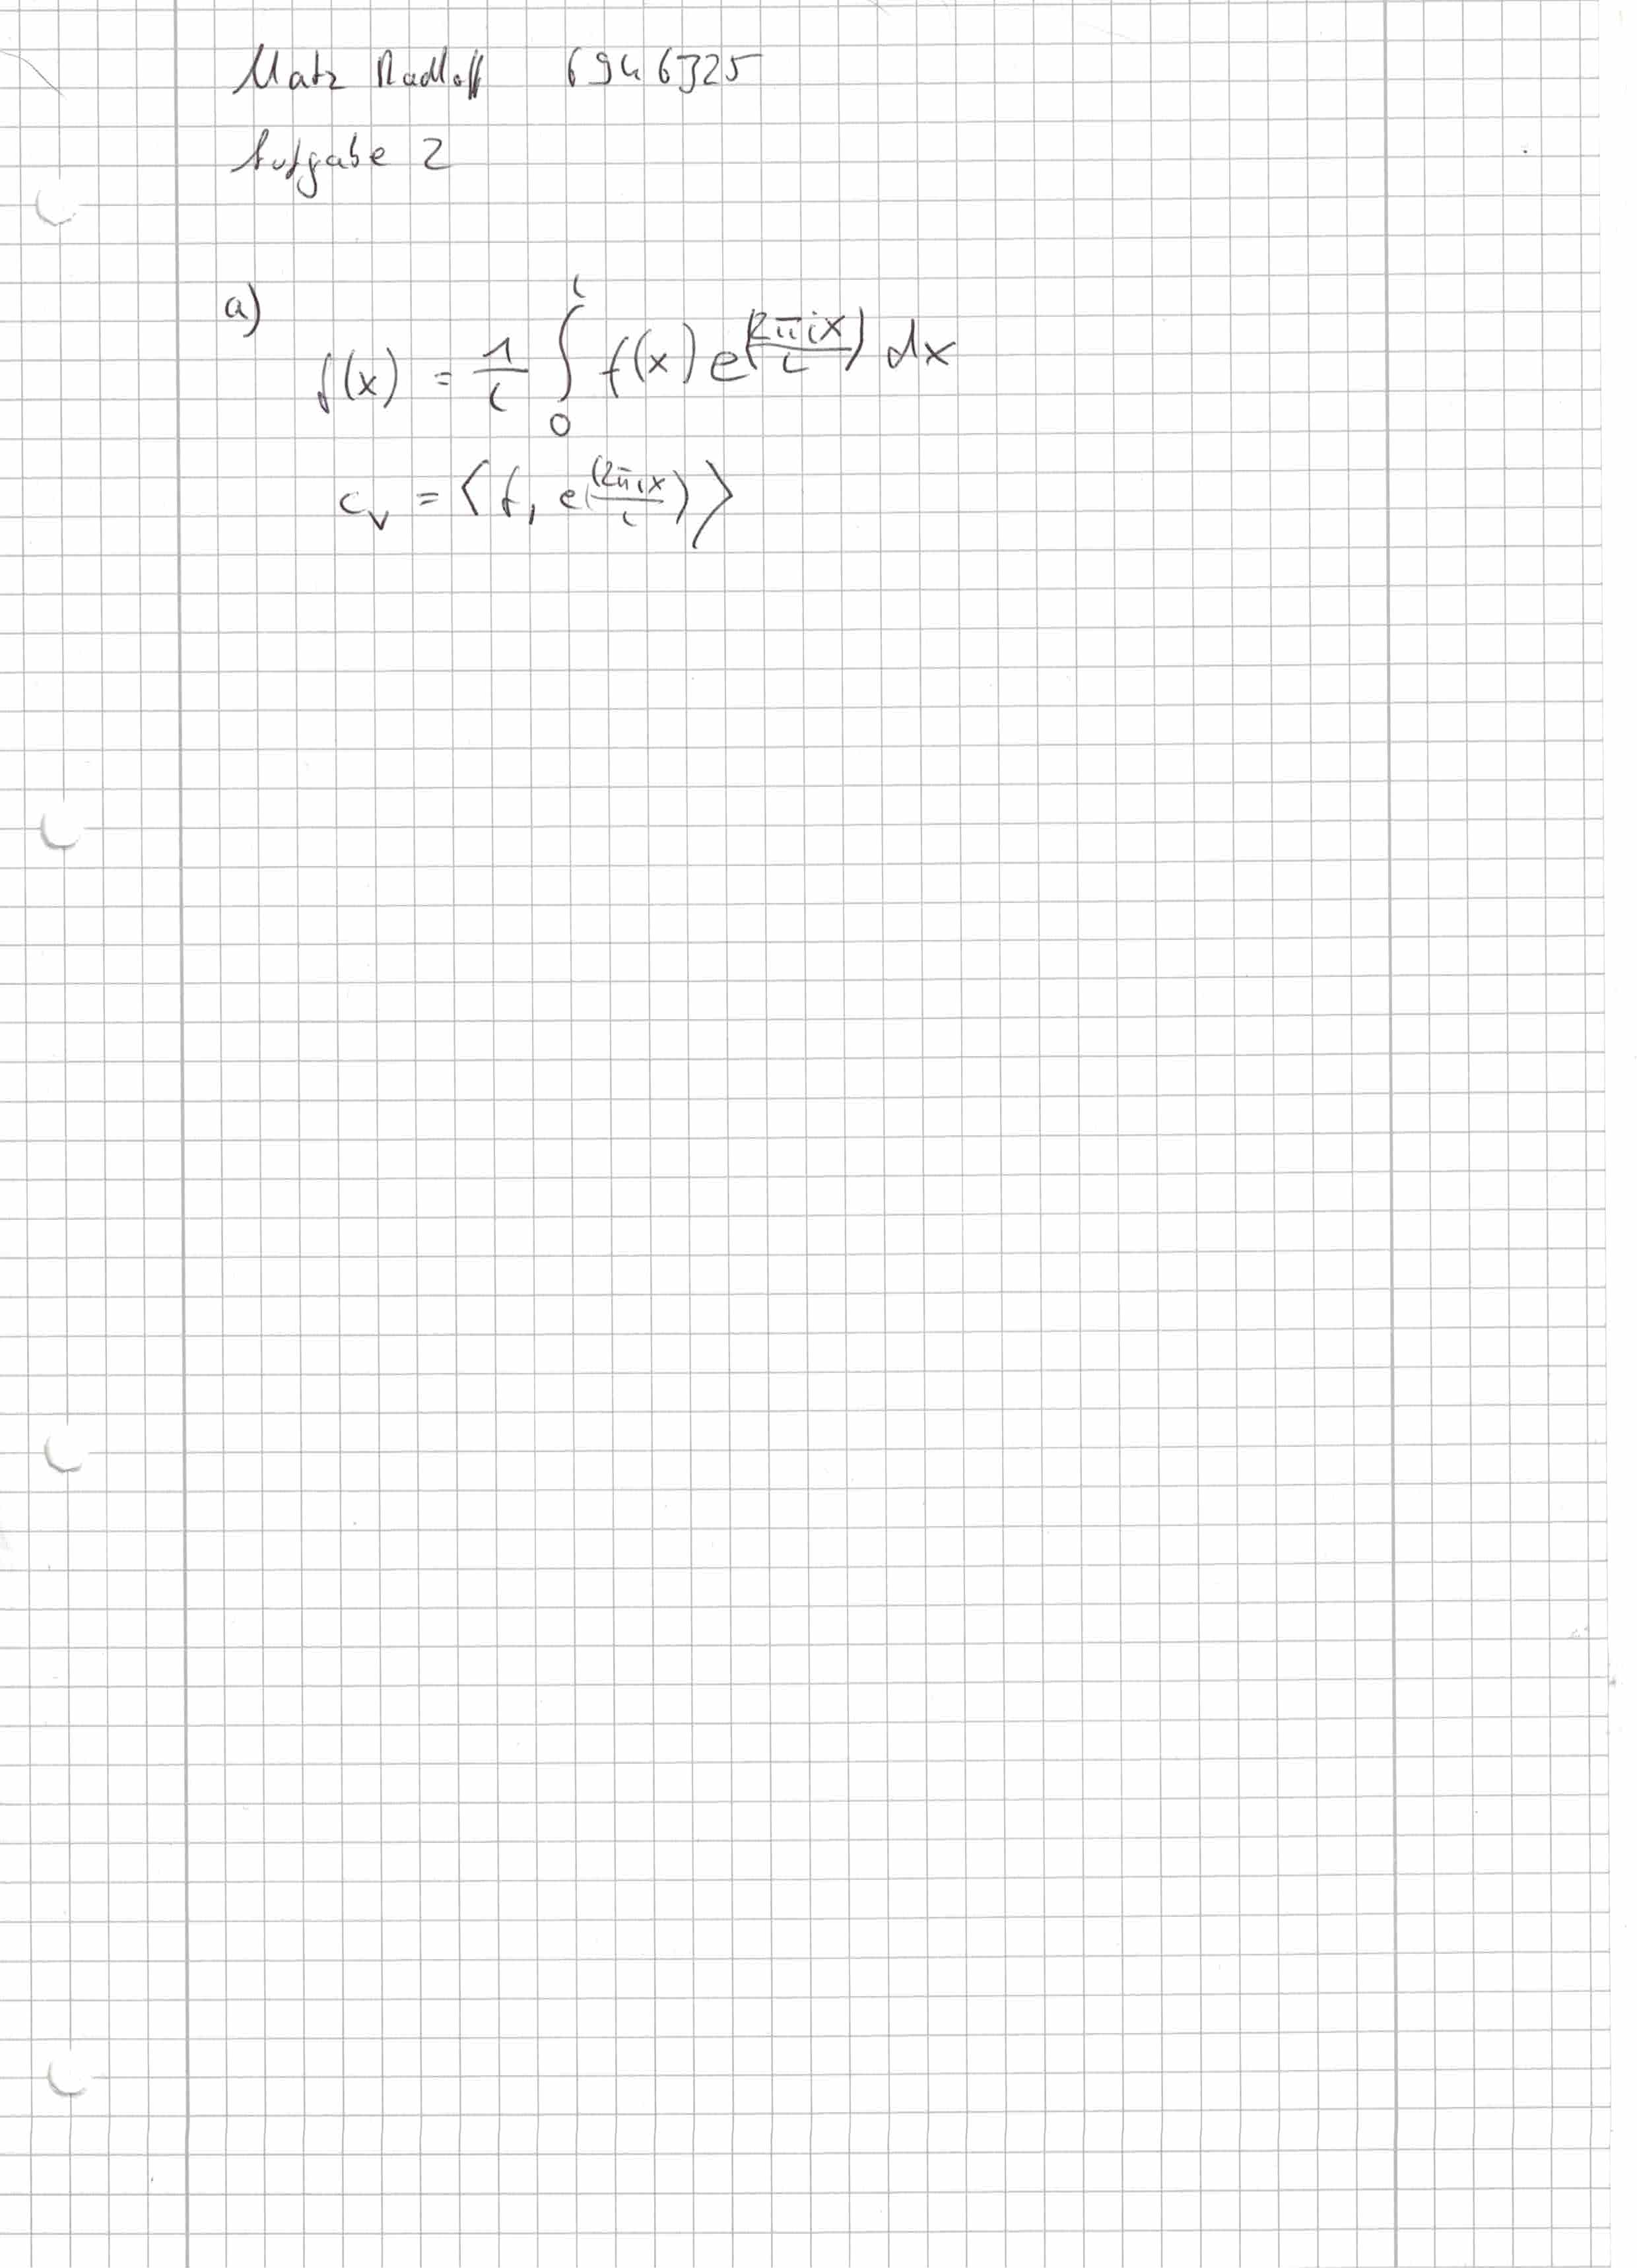 Matz Radloff 6946325
Aufgabe 2
a)
f(x) = 1/L ∫_0^L f(x) e^(2πix/L) dx
c_v = ⟨f, e^(2πix/L)⟩